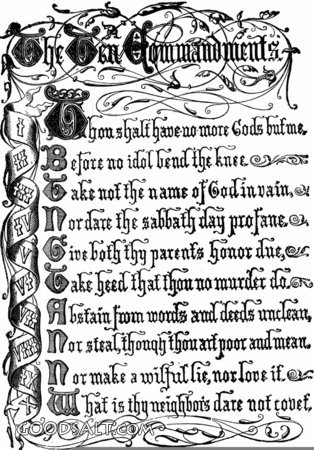 The Ten Commandments.
I Thou shalt have no more Gods but me.
II Before no idol bend the knee.
III Take not the name of God in vain,
IV Nor dare the sabbath day profane.
V Give both thy parents honor due,
VI Take heed that thou no murder do.
VII Abstain from words and deeds unclean,
VIII Nor steal, though thou art poor and mean.
IX Nor make a wilful lie, nor love it.
X What is thy neighbors dare not covet.
GOODSALT.com